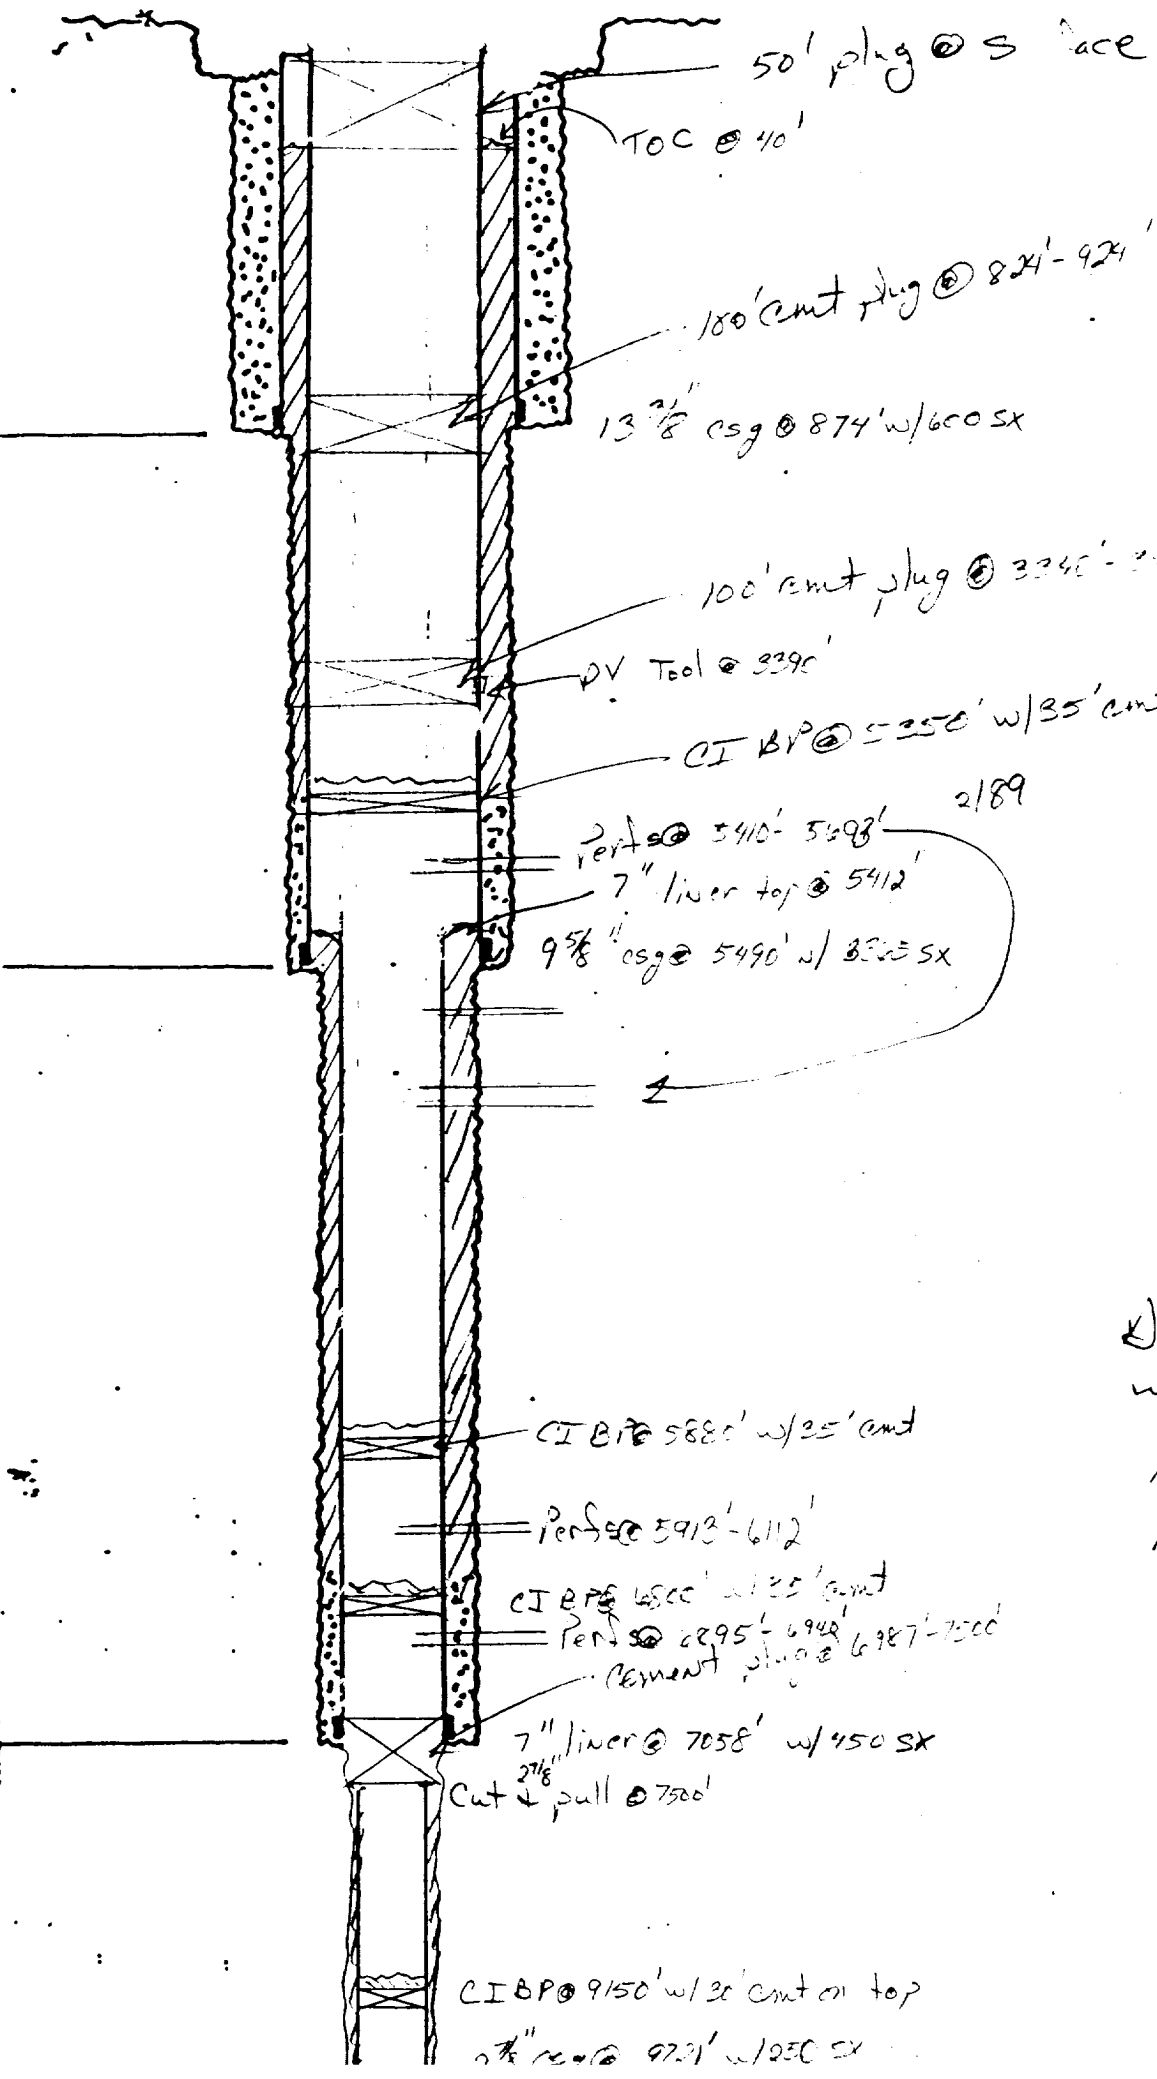 50' plug @ S ace
TOC @ 40'
100' cmt plug @ 824'-924'
13 3/8" csg @ 874' w/600 SX
100' cmt plug @ 3340'-
DV Tool @ 3390'
CIBP @ 5350' w/35' cm
2/89
Perfs @ 5410'-5698'
7" liner top @ 5412'
9 5/8" csg @ 5490' w/ SX
CIBP @ 5880' w/35' cmt
Perfs @ 5913'-6112'
CIBP @ 6800' w/35' cmt
Perfs @ 6895'-6948'
Cement plug @ 6987'-7500'
7" liner @ 7058' w/450 SX
2 7/8"
Cut & pull @ 7500'
CIBP @ 9150' w/30' cmt on top
2 7/8" csg @ 9721' w/250 SX